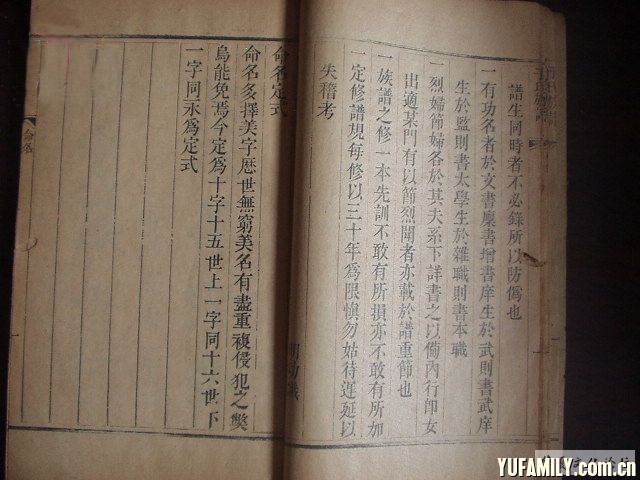 譜生同時者不必錄所以防僞也
一有功名者於文書廩書增書庠生於武則書武庠
生於監則書太學生於雜職則書本職
一烈婦節婦各於其夫系下詳書之以備內行即女
出適某門有以節烈聞者亦載於譜重節也
一族譜之修一本先訓不敢有所損亦不敢有所加
一定修譜規每修以三十年爲限慎勿姑待遲延以
失稽考
命名定式
命名多擇美字歷世無窮美名有盡重複侵犯之獘
烏能免焉今定爲十字十五世上一字同十六世下
一字同永爲定式
命名
YUFAMILY.com.cn